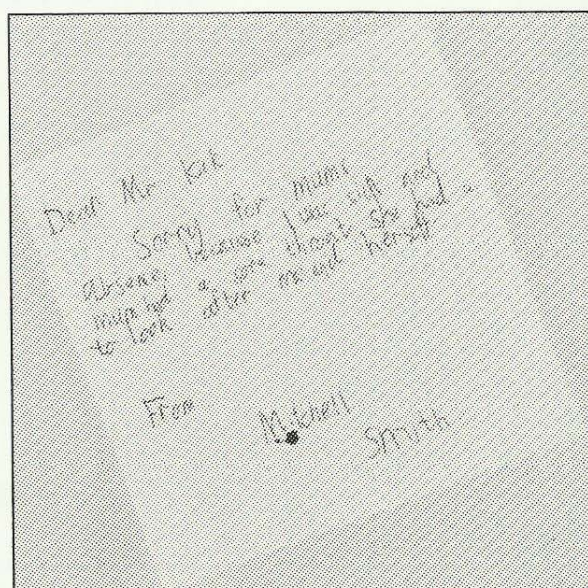 Dear Mr Kik
Sorry for mums
absence, because I was sick and
mum had a sore throat she had
to look after me and herself
From Mitchell
Smith